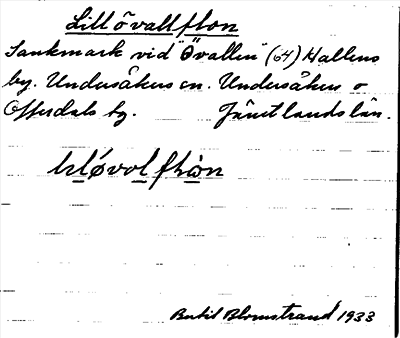 Lillövallflon
Sankmark vid "Övallen" (64) Hallens
by. Undersåkers sn. Undersåkers o
Offerdals tg. Jämtlands län.
Bertil Blomstrand 1933